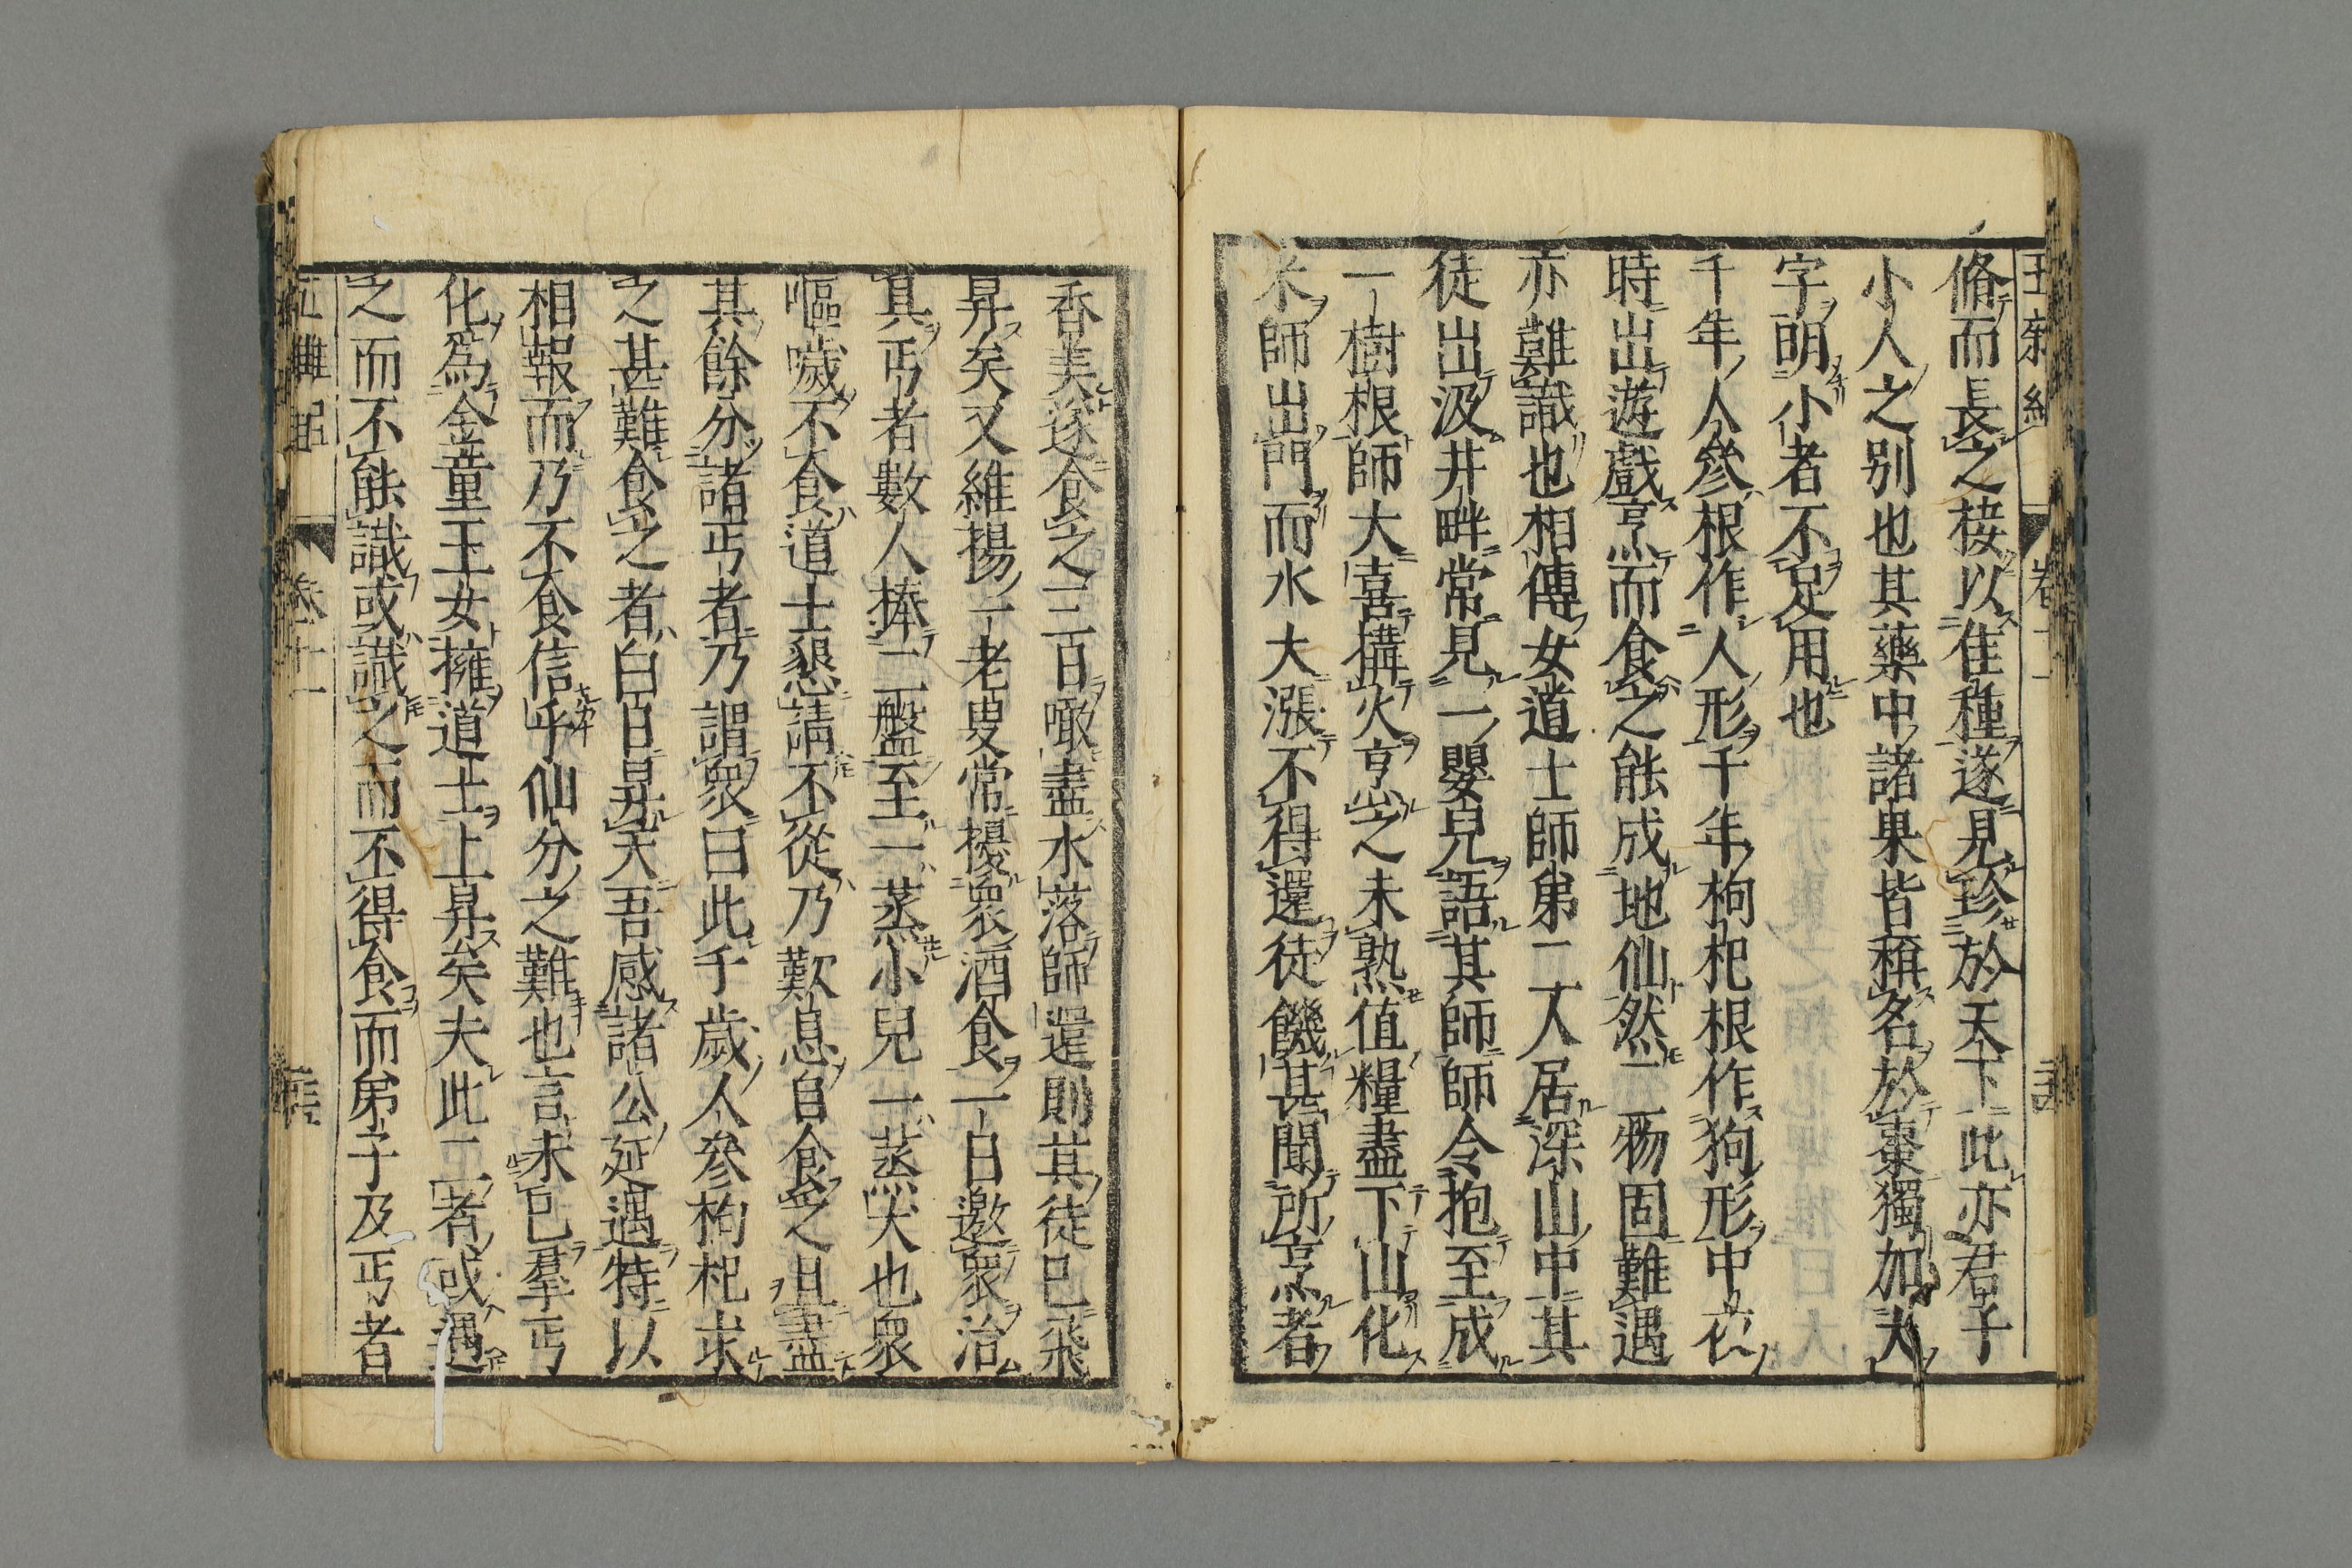 脩而長之接以佳種遂見珍於天下此亦君子
小人之別也其藥中諸果皆稱名於棗獨加大
字明小者不足用也
千年人參根作人形千年枸杞根作狗形中夜
時出遊戲烹而食之能成地仙然二物固難遇
亦難識也相傳女道士師弟二人居深山中其
徒出汲井畔常見一嬰兒語其師師令抱至成
一樹根師大喜搆火烹之未熟值糧盡下山化
米師出門而水大漲不得還徒饑甚聞所烹者
香美遂食之三日噉盡水落師還則其徒已飛
昇矣又維揚一老叟常擾衆酒食一日邀衆治
具丐者數人捧二盤至一蒸小兒一蒸犬也衆
嘔噦不食道士懇請不從乃歎息自食之且盡
其餘分諸丐者乃謂衆曰此千歲人參枸杞求
之甚難食之者白日昇天吾感諸公延遇特以
相報而乃不食信乎仙分之難也言未已羣丐
化爲金童玉女擁道士上昇矣夫此二者或遇
之而不能識或識之而不得食而弟子及丐者
五雜組
卷十一